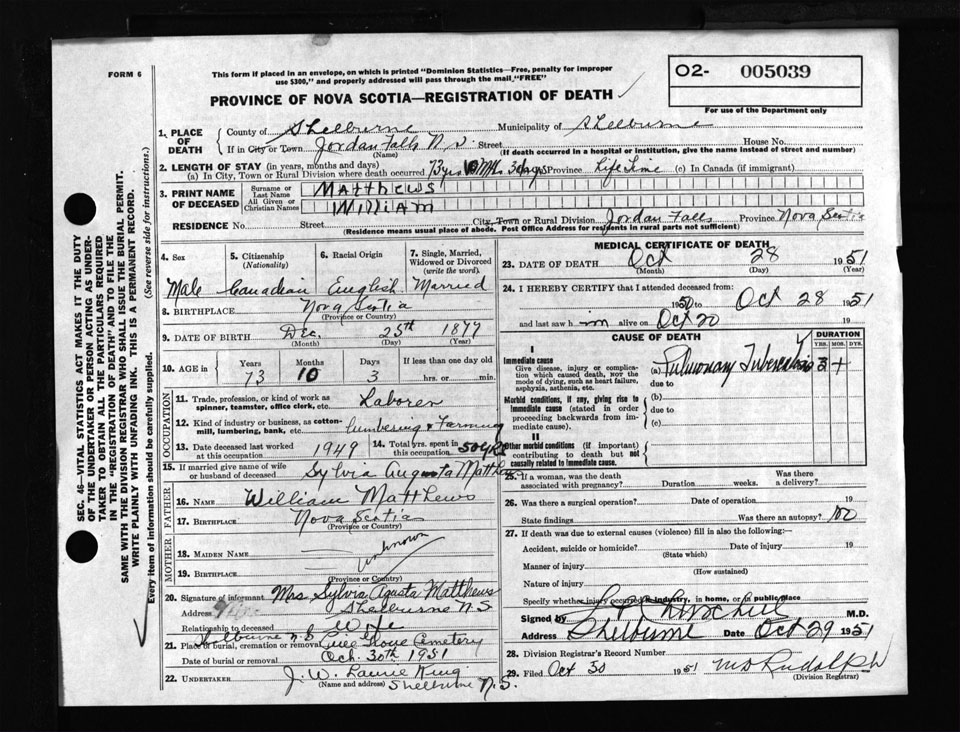 FORM 6
This form if placed in an envelope, on which is printed "Dominion Statistics—Free, penalty for improper
use $300," and properly addressed will pass through the mail, "FREE"
PROVINCE OF NOVA SCOTIA—REGISTRATION OF DEATH
O2- 005039
For use of the Department only
SEC. 46—VITAL STATISTICS ACT MAKES IT THE DUTY
OF THE UNDERTAKER OR PERSON ACTING AS UNDER-
TAKER TO OBTAIN ALL THE PARTICULARS REQUIRED
IN THE "REGISTRATION OF DEATH" AND TO FILE THE
SAME WITH THE DIVISION REGISTRAR WHO SHALL ISSUE THE BURIAL PERMIT.
WRITE PLAINLY WITH UNFADING INK. THIS IS A PERMANENT RECORD.
Every item of information should be carefully supplied. (See reverse side for instructions.)
1. PLACE OF DEATH
County of Shelburne Municipality of Shelburne
If in City or Town Jordan Falls N.S. Street House No.
(Name) (If death occurred in a hospital or institution, give the name instead of street and number)
2. LENGTH OF STAY (in years, months and days)
(a) In City, Town or Rural Division where death occurred 73 yrs 10 Mths 3 days Province Life Time (c) In Canada (if immigrant)
3. PRINT NAME OF DECEASED
Surname or Last Name MATTHEWS
All Given or Christian Names WILLIAM
RESIDENCE No. Street City, Town or Rural Division Jordan Falls Province Nova Scotia
(Residence means usual place of abode. Post Office Address for residents in rural parts not sufficient)
4. Sex 5. Citizenship (Nationality) 6. Racial Origin 7. Single, Married, Widowed or Divorced (write the word)
Male Canadian English Married
8. BIRTHPLACE Nova Scotia
(Province or Country)
9. DATE OF BIRTH Dec. 25th 1877
(Month) (Day) (Year)
10. AGE in Years 73 Months 10 Days 3 If less than one day old hrs. or min.
OCCUPATION
11. Trade, profession, or kind of work as spinner, teamster, office clerk, etc. Laborer
12. Kind of industry or business, as cotton-mill, lumbering, bank, etc. Lumbering & Farming
13. Date deceased last worked at this occupation 1949
14. Total yrs. spent in this occupation 50 YRS
15. If married give name of wife or husband of deceased Sylvia Augusta Matthews
FATHER
16. NAME William Matthews
17. BIRTHPLACE Nova Scotia
(Province or Country)
MOTHER
18. MAIDEN NAME
unknown
19. BIRTHPLACE
(Province or Country)
20. Signature of informant Mrs Sylvia Agusta Matthews
Address Shelburne N.S
Relationship to deceased Wife
Shelburne N.S
21. Place of burial, cremation or removal Pine Grove Cemetery
Date of burial or removal Oct. 30th 1951
22. UNDERTAKER J. W. Laurie King
(Name and address) Shelburne N.S.
MEDICAL CERTIFICATE OF DEATH
23. DATE OF DEATH Oct 28 1951
(Month) (Day) (Year)
24. I HEREBY CERTIFY that I attended deceased from:
1950 to Oct 28 1951
and last saw him alive on Oct 20 19
CAUSE OF DEATH
DURATION
YRS. MOS. DYS.
I
Immediate cause
Give disease, injury or complication which caused death, not the mode of dying, such as heart failure, asphyxia, asthenia, etc.
(a) Pulmonary Tuberculosis 3 +
due to
Morbid conditions, if any, giving rise to immediate cause (stated in order proceeding backwards from immediate cause).
(b)
due to
(c)
II
Other morbid conditions (if important) contributing to death but not causally related to immediate cause.
25. If a woman, was the death associated with pregnancy? Duration weeks. Was there a delivery?
26. Was there a surgical operation? Date of operation 19
State findings Was there an autopsy? no
27. If death was due to external causes (violence) fill in also the following:—
Accident, suicide or homicide? Date of injury 19
(State which)
Manner of injury
(How sustained)
Nature of injury
Specify whether injury occurred in industry, in home, or in public place
Signed by Churchill M.D.
Address Shelburne Date Oct 29 1951
28. Division Registrar's Record Number
29. Filed Oct 30 1951 M D Rudolph
(Division Registrar)